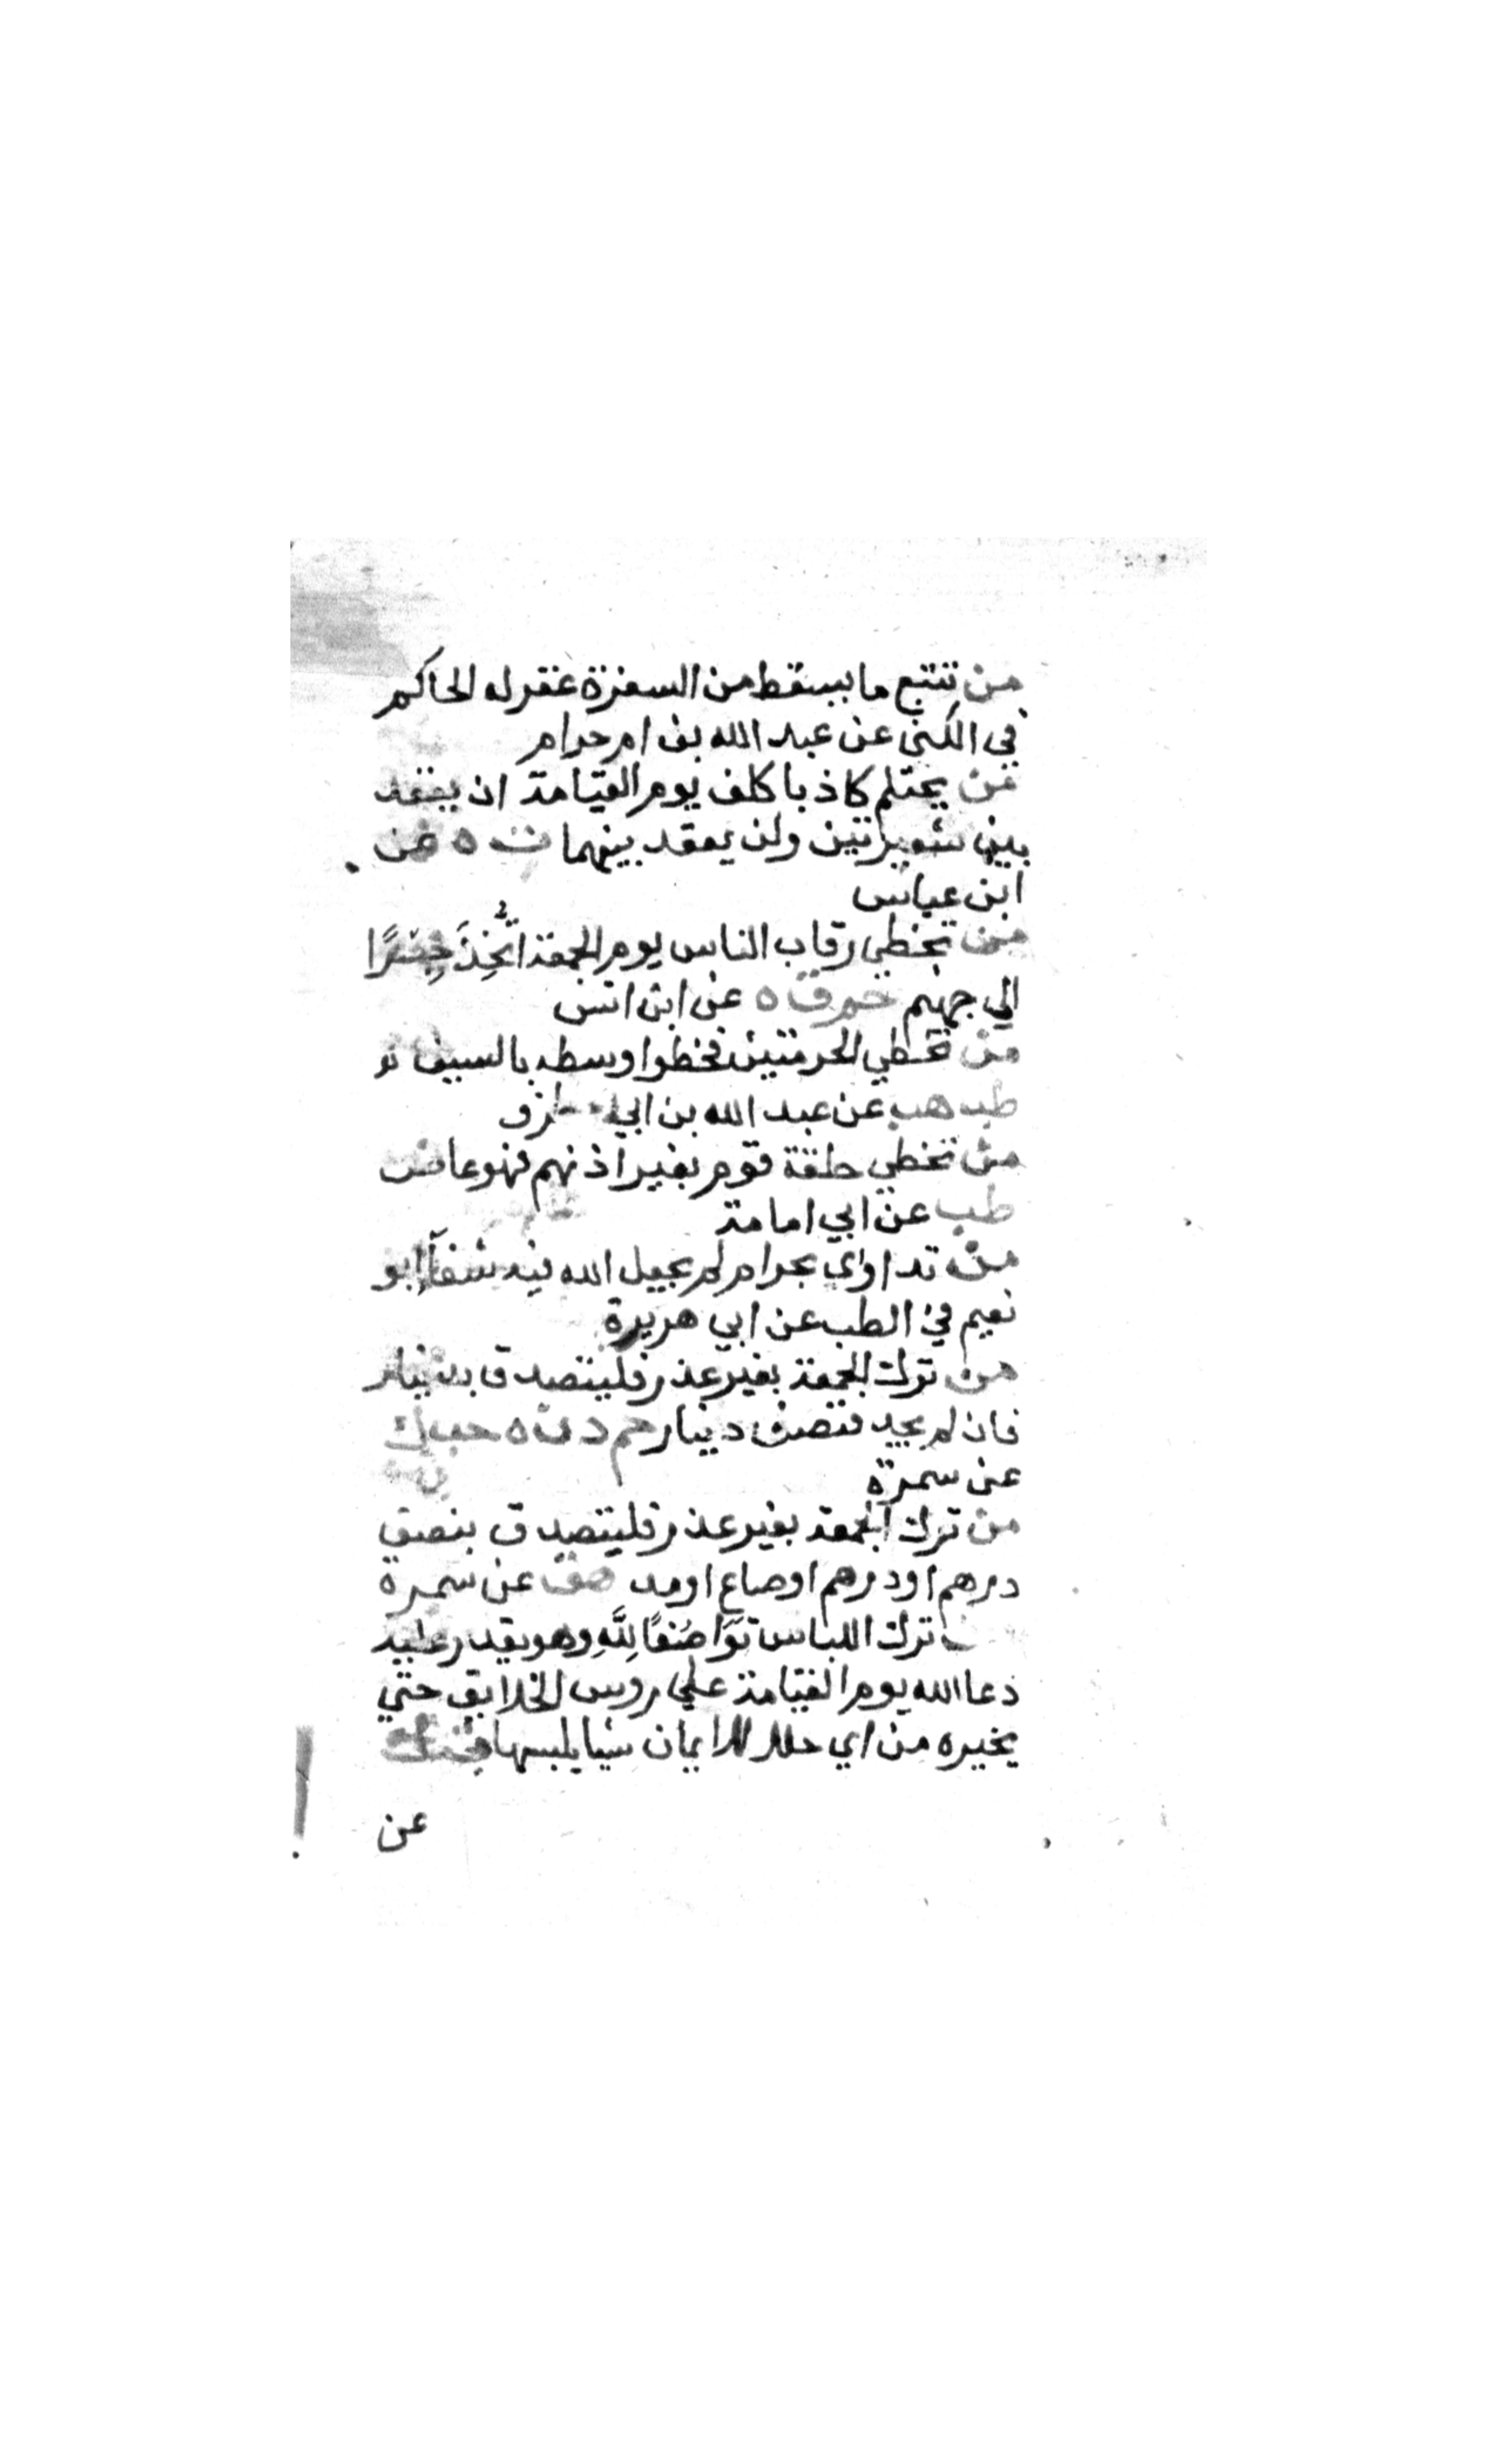 من تتبع ما يسقط من السفرة غفر له الحاكم
في الكنى عن عبد الله بن ام حرام
من يحتلم كاذبا كلف يوم القيامة ان يعقد
بين شعيرتين ولن يعقد بينهما ت ه عن
ابن عباس
من تخطي رقاب الناس يوم الجمعة اتُّخِذَ جِسْرًا
الي جهنم حم ت ه عن ابن انس
من تخطي الحرمتين فخطوا وسطه بالسيف
طب هب عن عبد الله بن ابي مطرف
من تخطي حلقة قوم بغير اذنهم فهو عاص
طب عن ابي امامة
من تداوي بحرام لم يجعل الله فيه شفآ ابو
نعيم في الطب عن ابي هريرة
من ترك الجمعة بغير عذر فليتصدق بدينار
فان لم يجد فنصف دينار حم د ن ه حب ك
عن سمرة
من ترك الجمعة بغير عذر فليتصدق بنصف
درهم او درهم او صاع او مد هق عن سمرة
ترك اللباس تَوَاضُعًا لِلَّهِ وهو يقدر عليه
دعا الله يوم القيامة علي روس الخلايق حتي
يخيره من اي حلل الايمان شا يلبسها ت ك
عن